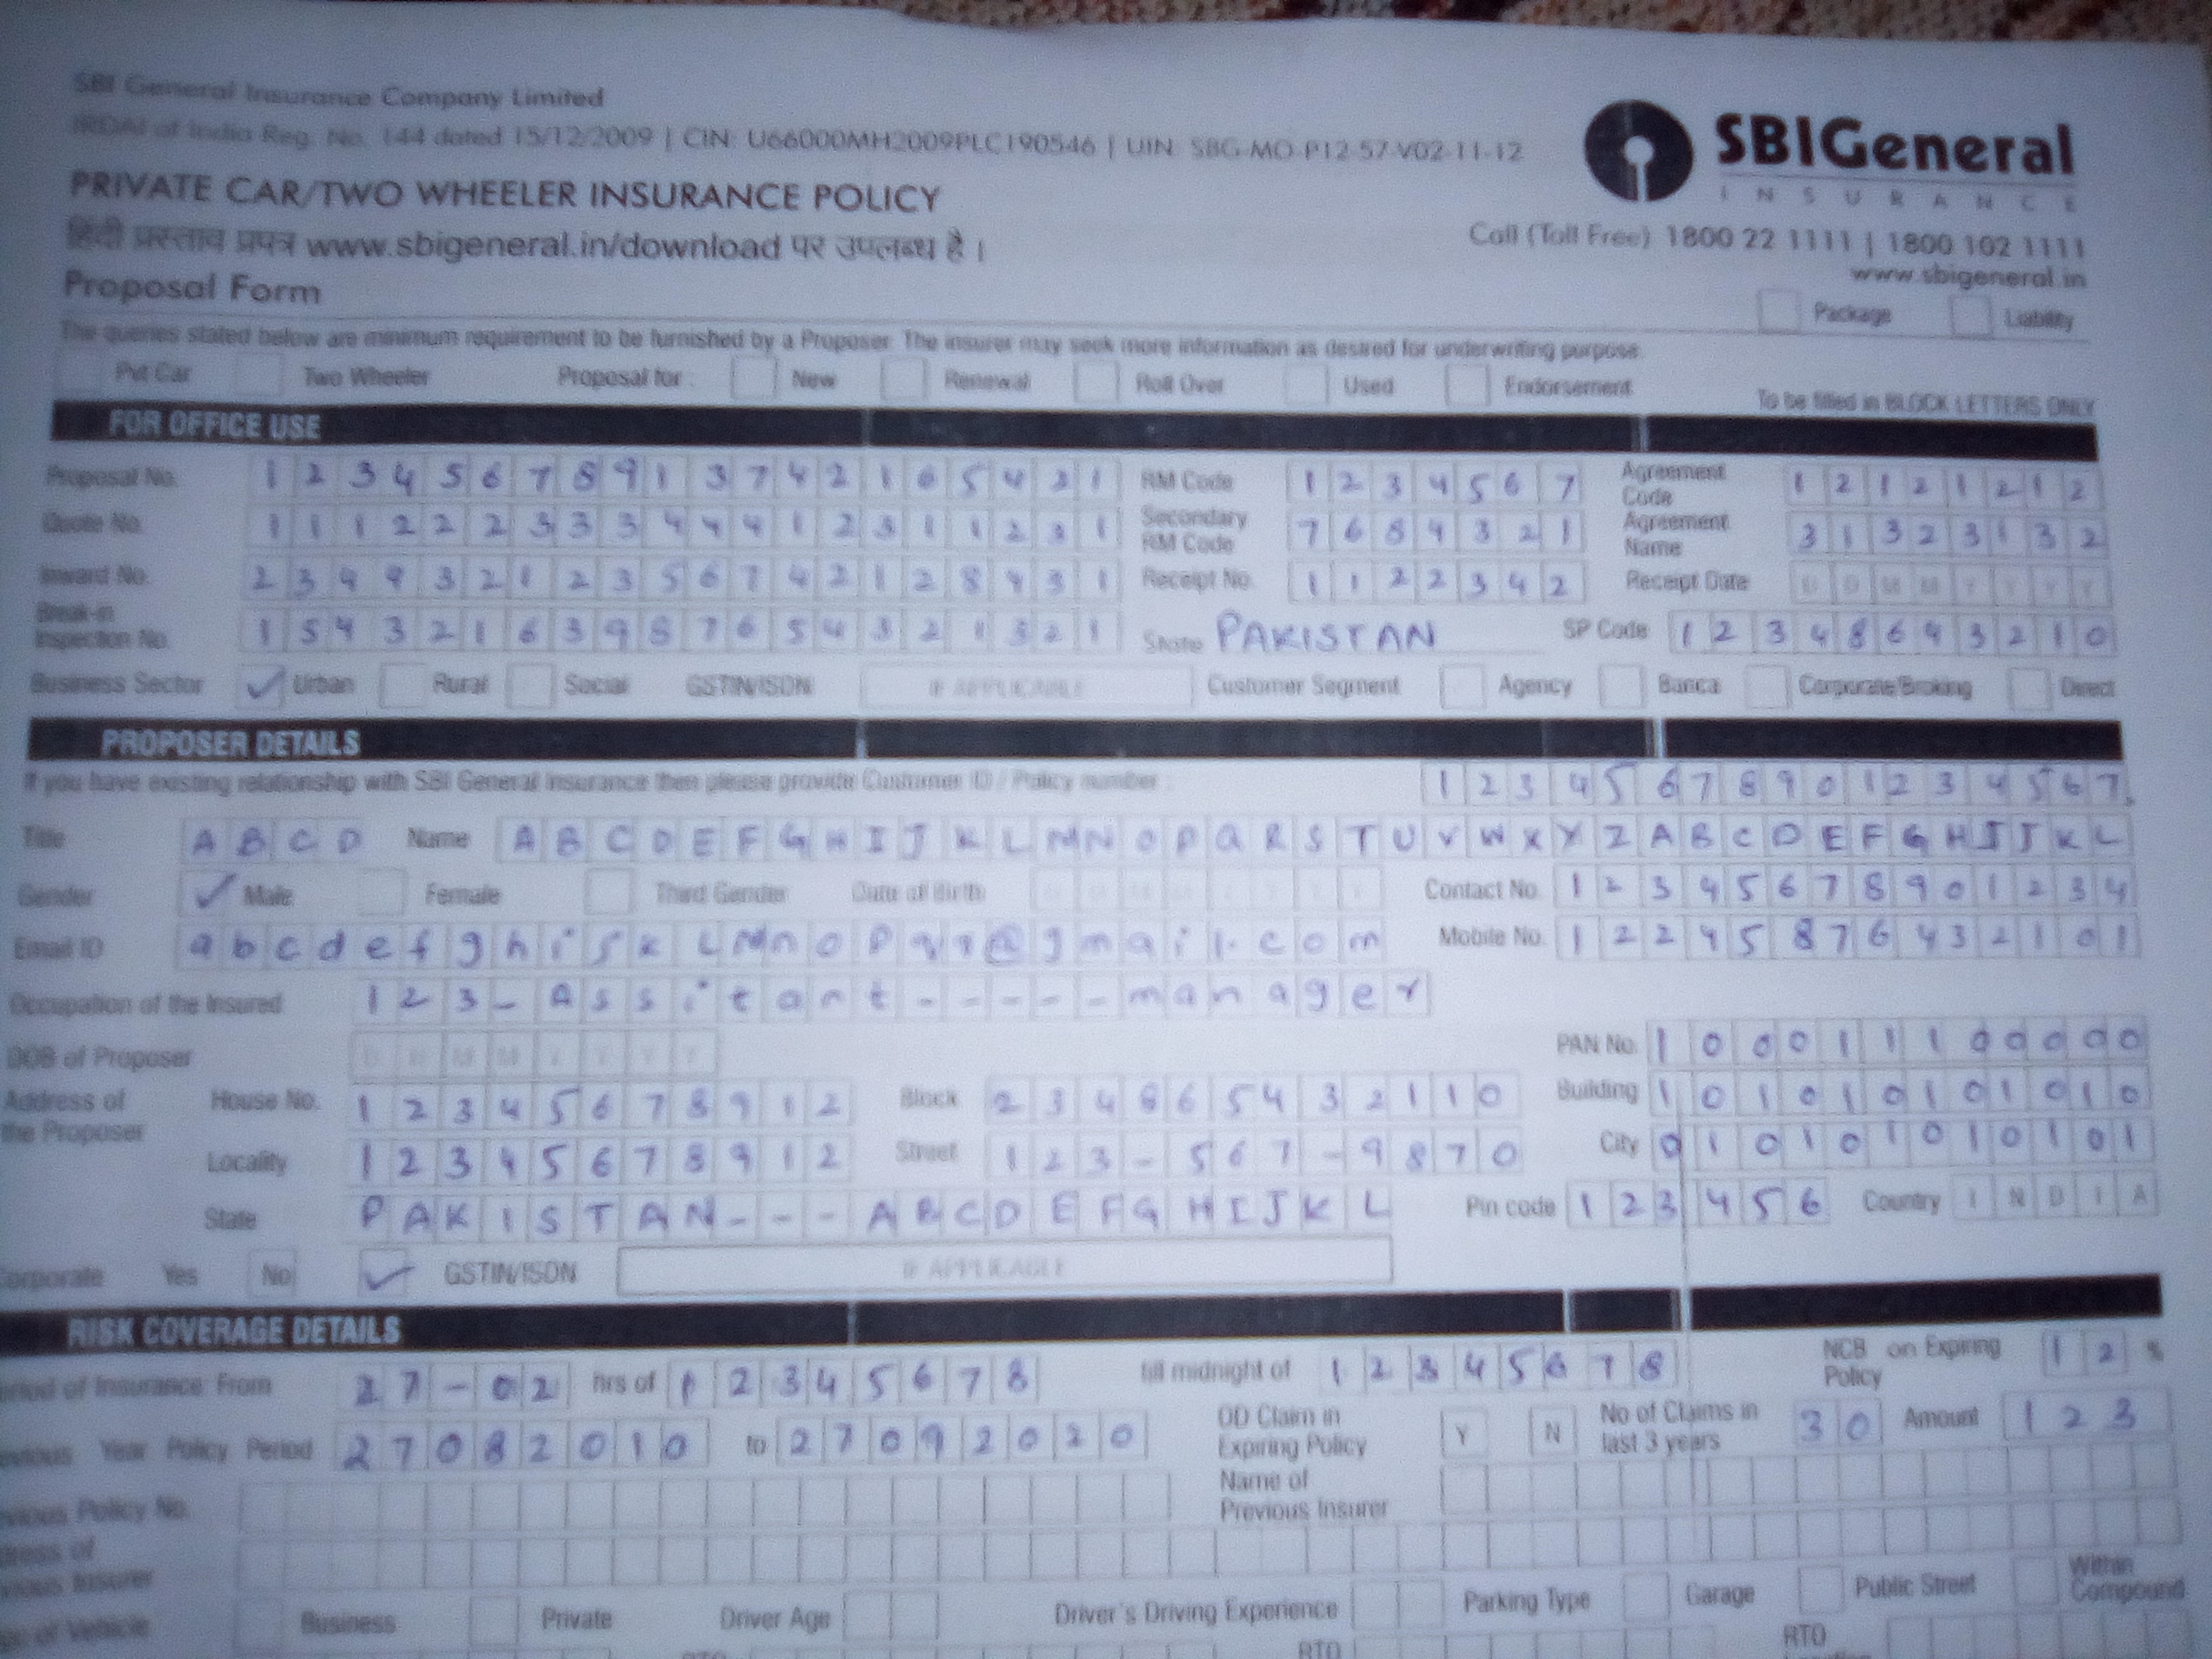 SBI General Insurance Company Limited
IRDAI of India Reg. No. 144 dated 15/12/2009 | CIN: U66000MH2009PLC190546 | UIN: SBG-MO-P12-57-V02-11-12
SBIGeneral
INSURANCE
PRIVATE CAR/TWO WHEELER INSURANCE POLICY
हिंदी प्रस्ताव प्रपत्र www.sbigeneral.in/download पर उपलब्ध है।
Call (Toll Free) 1800 22 1111 | 1800 102 1111
www.sbigeneral.in
Proposal Form
Package Liability
The queries stated below are minimum requirement to be furnished by a Proposer. The insurer may seek more information as desired for underwriting purpose.
Pvt Car Two Wheeler Proposal for : New Renewal Roll Over Used Endorsement
To be filled in BLOCK LETTERS ONLY
FOR OFFICE USE
Proposal No. 12345678913742165421 RM Code 1234567 Agreement Code 12121212
Quote No. 11122233344412311231 Secondary RM Code 7684321 Agreement Name 31323132
Inward No. 23493212356742128431 Receipt No. 1122342 Receipt Date DDMMYYYY
Break-in Inspection No. 15432163987654321321 State PAKISTAN SP Code 12348643210
Business Sector Urban Rural Social GSTIN/ISDN IF APPLICABLE Customer Segment Agency Banca Corporate/Broking Direct
PROPOSER DETAILS
If you have existing relationship with SBI General Insurance then please provide Customer ID / Policy number : 12345678901234567
Title ABCD Name ABCDEFGHIJKLMNOPQRSTUVWXYZABCDEFGHIJKL
Gender Male Female Third Gender Date of Birth Contact No. 12345678901234
Email ID abcdefghijkLMnopqr@gmail.com Mobile No. 12245876432101
Occupation of the Insured 123-Assitant-----manager
DOB of Proposer DDMMYYYY PAN No. 100011100000
Address of the Proposer House No. 12345678912 Block 234865432110 Building 101010101010
Locality 12345678912 Street 123-567-9870 City 010101010101
State PAKISTAN---ABCDEFGHIJKL Pin code 123456 Country INDIA
Corporate Yes No GSTIN/ISDN IF APPLICABLE
RISK COVERAGE DETAILS
Period of Insurance From 27-02 hrs of 12345678 till midnight of 12345678 NCB on Expiring Policy 12 %
Previous Year Policy Period 27082010 to 27092020 OD Claim in Expiring Policy Y N No of Claims in last 3 years 30 Amount 123
Previous Policy No. Name of Previous Insurer
Address of Previous Insurer
of Vehicle Business Private Driver Age Driver's Driving Experience Parking Type Garage Public Street Within Compound
RTO RTO RTO